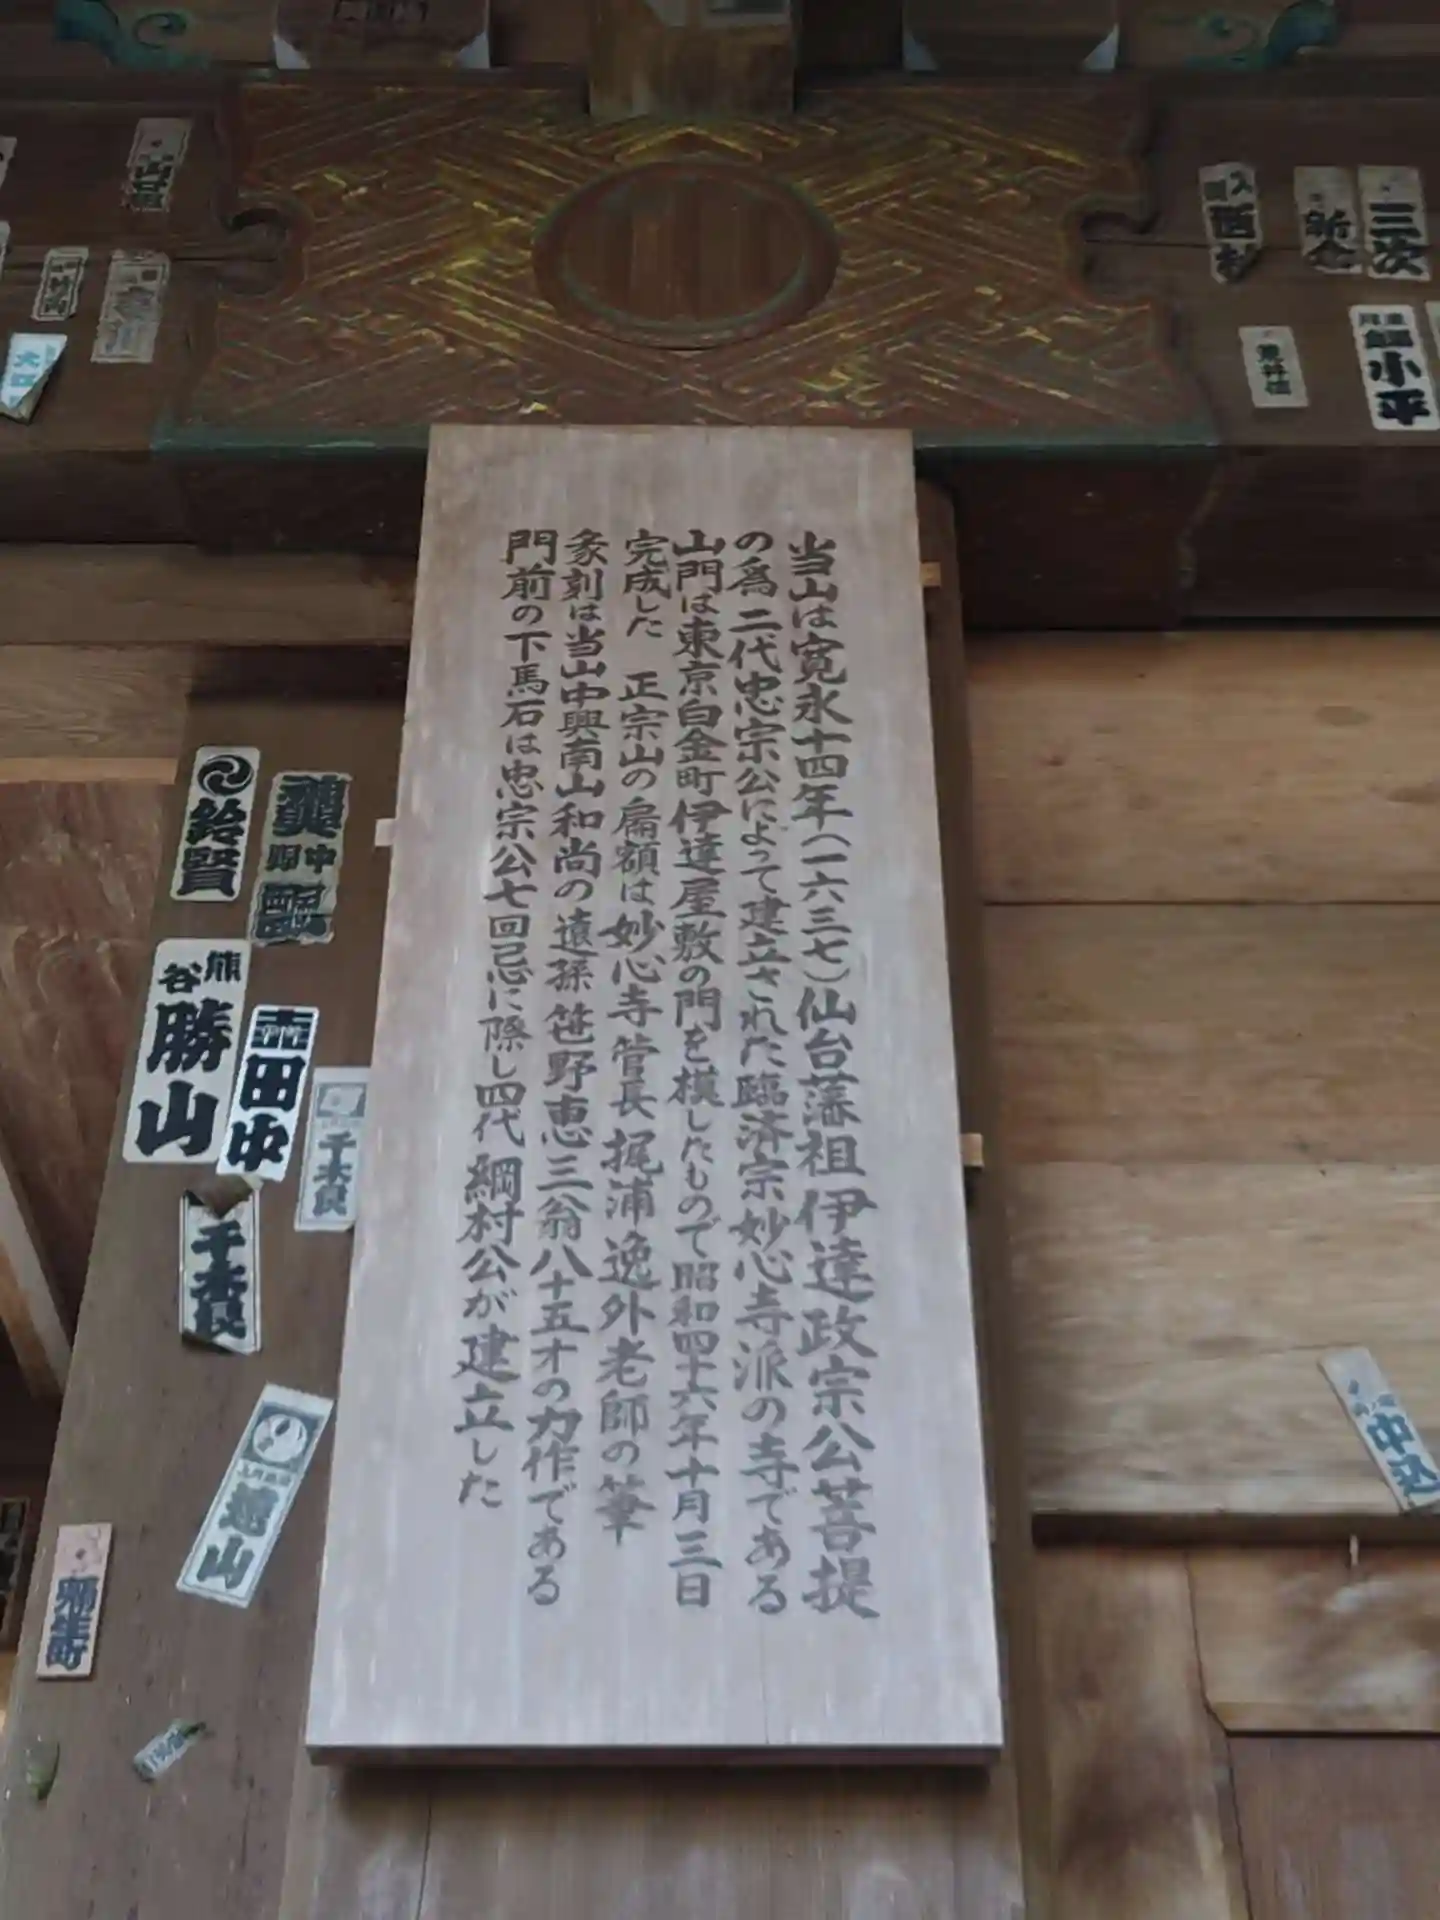 当山は寛永十四年(一六三七)仙台藩祖伊達政宗公菩提
の為二代忠宗公によって建立された臨済宗妙心寺派の寺である
山門は東京白金町伊達屋敷の門を模したもので昭和四十六年十月三日
完成した 正宗山の扁額は妙心寺管長梶浦逸外老師の筆
彖刻は当山中興南山和尚の遠孫笹野恵三翁八十五才の力作である
門前の下馬石は忠宗公七回忌に際し四代綱村公が建立した
三次
小平
鈴賢
熊谷
勝山
田中
千社良
遠山
弥生町
中込